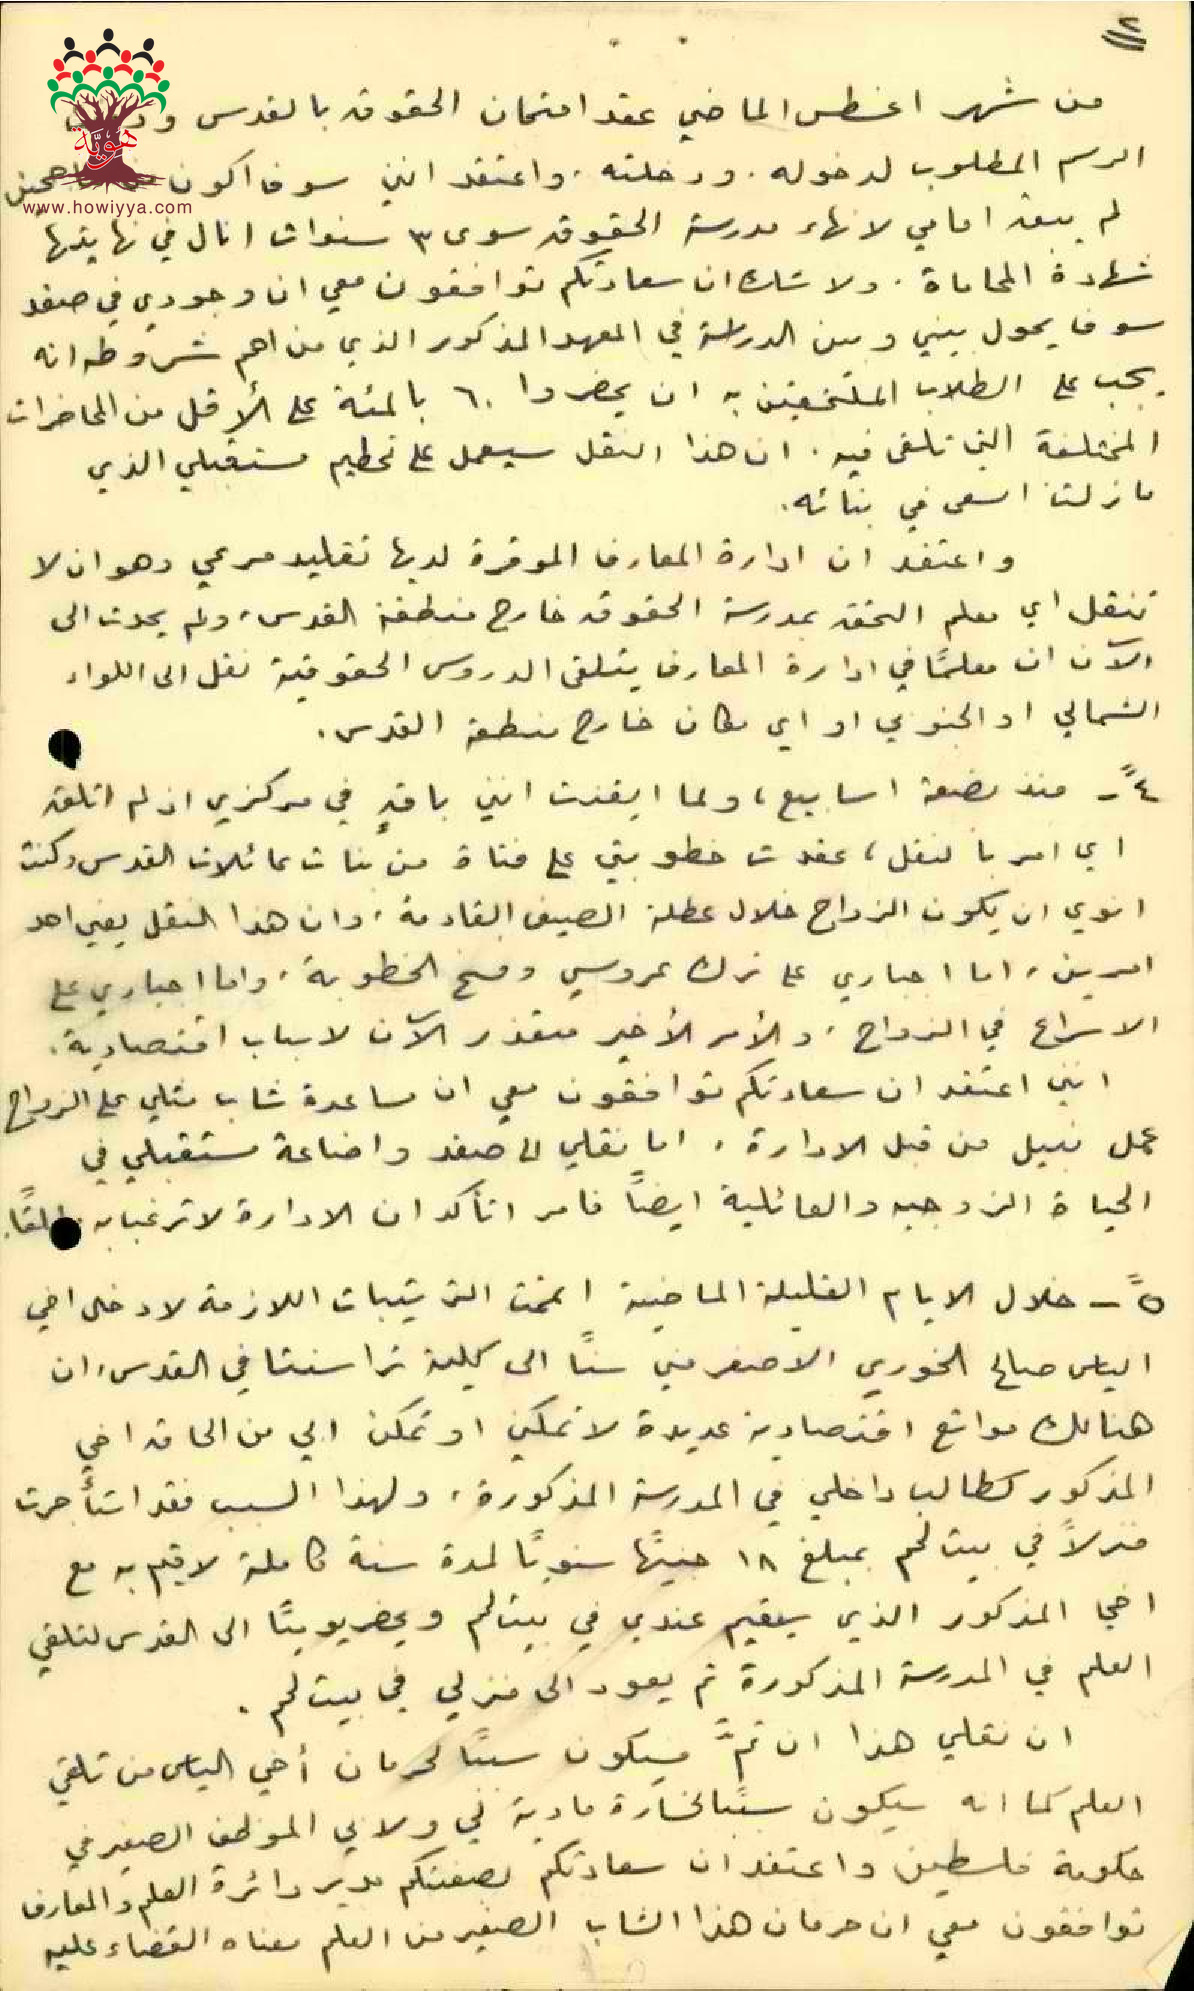 ٢
من شهر اغسطس الماضي عقد امتحان الحقوق بالقدس
هويّة
الرسم المطلوب لدخوله . ودخلته . واعتقد انني سوف اكون
www.howiyya.com
لم يبق امامي لانهاء مدرسة الحقوق سوى ٣ سنوات انال في نهايتها
شهادة المحاماة . ولا شك ان سعادتكم توافقون معي ان وجودي في صفد
سوف يحول بيني وبين الدراسة في المعهد المذكور الذي من اهم شروطه انه
يجب على الطلاب الملتحقين به ان يحضروا ٦٠ بالمئة على الأقل من المحاضرات
المختلفة التي تلقى فيه . ان هذا النقل سيعمل على تحطيم مستقبلي الذي
ما زلت اسعى في بنائه .
واعتقد ان ادارة المعارف الموقرة لديها تقليد مرعي وهو ان لا
تنقل اي معلم التحق بمدرسة الحقوق خارج منطقة القدس ، ولم يحدث الى
الآن ان معلمًا في ادارة المعارف يتلقى الدروس الحقوقية نقل الى اللواء
الشمالي او الجنوبي او اي مكان خارج منطقة القدس .
٤ً - منذ بضعة اسابيع ، ولما ايقنت انني باقٍ في مركزي اذ لم اتلق
اي امر بالنقل ، عقدت خطوبتي على فتاة من بنات عائلات القدس وكنت
انوي ان يكون الزواج خلال عطلة الصيف القادمة . وان هذا النقل يعني احد
امرين ، اما اجباري على ترك عروسي وفسخ الخطوبة ، واما اجباري على
الاسراع في الزواج ، والأمر الأخير متعذر الآن لاسباب اقتصادية .
انني اعتقد ان سعادتكم توافقون معي ان مساعدة شاب مثلي على الزواج
عمل نبيل من قبل الادارة ، اما نقلي الى صفد واضاعة مستقبلي في
الحياة الزوجيه والعائلية ايضًا فامر اتأكد ان الادارة لا ترغب به مطلقًا.
٥ً - خلال الايام القليلة الماضية اتممت الترتيبات اللازمة لادخال اخي
الياس صالح الخوري الاصغر مني سنًا الى كلية تراسنتا في القدس ، ان
هنالك موانع اقتصادية عديدة لا تمكني او تمكن ابي من الحاق اخي
المذكور كطالب داخلي في المدرسة المذكورة ، ولهذا السبب فقد استأجرت
منزلاً في بيت لحم بمبلغ ١٨ جنيهًا سنويًا لمدة سنة كاملة لاقيم به مع
اخي المذكور الذي سيقيم عندي في بيت لحم ويحضر يوميًا الى القدس لتلقي
العلم في المدرسة المذكورة ثم يعود الى منزلي في بيت لحم .
ان نقلي هذا ان تمّ سيكون سببًا لحرمان أخي الياس من تلقي
العلم كما انه سيكون سببًا لخسارة مادية لي ولابي الموظف الصغير في
حكومة فلسطين واعتقد ان سعادتكم بصفتكم مدير دائرة العلم والمعارف
توافقون معي ان حرمان هذا الشاب الصغير من العلم معناه القضاء عليه